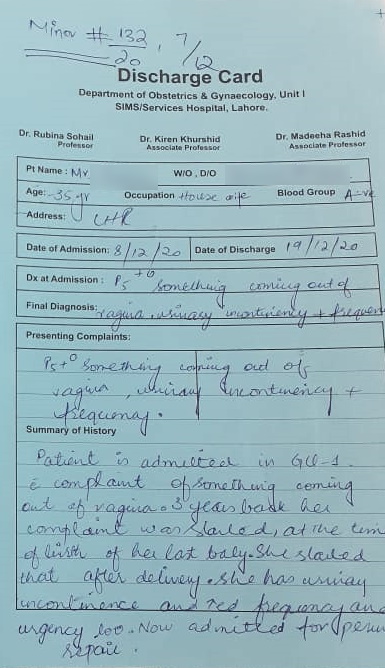 Minor # 132/20, 7/12
Discharge Card
Department of Obstetrics & Gynaecology, Unit I
SIMS/Services Hospital, Lahore.
Dr. Rubina Sohail Dr. Kiren Khurshid Dr. Madeeha Rashid
Professor Associate Professor Associate Professor
Pt Name : W/O , D/O
Age: 35 yr Occupation House wife Blood Group A-ve
Address: LHR
Date of Admission: 8/12/20 Date of Discharge 19/12/20
Dx at Admission : P5+0 Something coming out of
Final Diagnosis: vagina, urinary incontinency + frequen
Presenting Complaints:
P5+0 Something coming out of
vagina, urinary incontinency +
frequenay.
Summary of History
Patient is admitted in GU-1
c̄ complaint of something coming
out of vagina. 3 years back her
complaint was started, at the tim
of birth of her last baby. She stated
that after delivery she has urinay
incontinence and frequency and
urgency too. Now admitted for
repair.